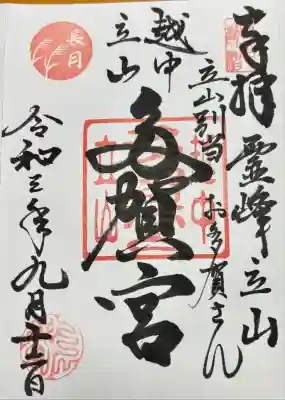 奉拝 霊峰立山
立山別当 お多賀さん
越中
立山
多賀宮
令和三年九月十二日
長月